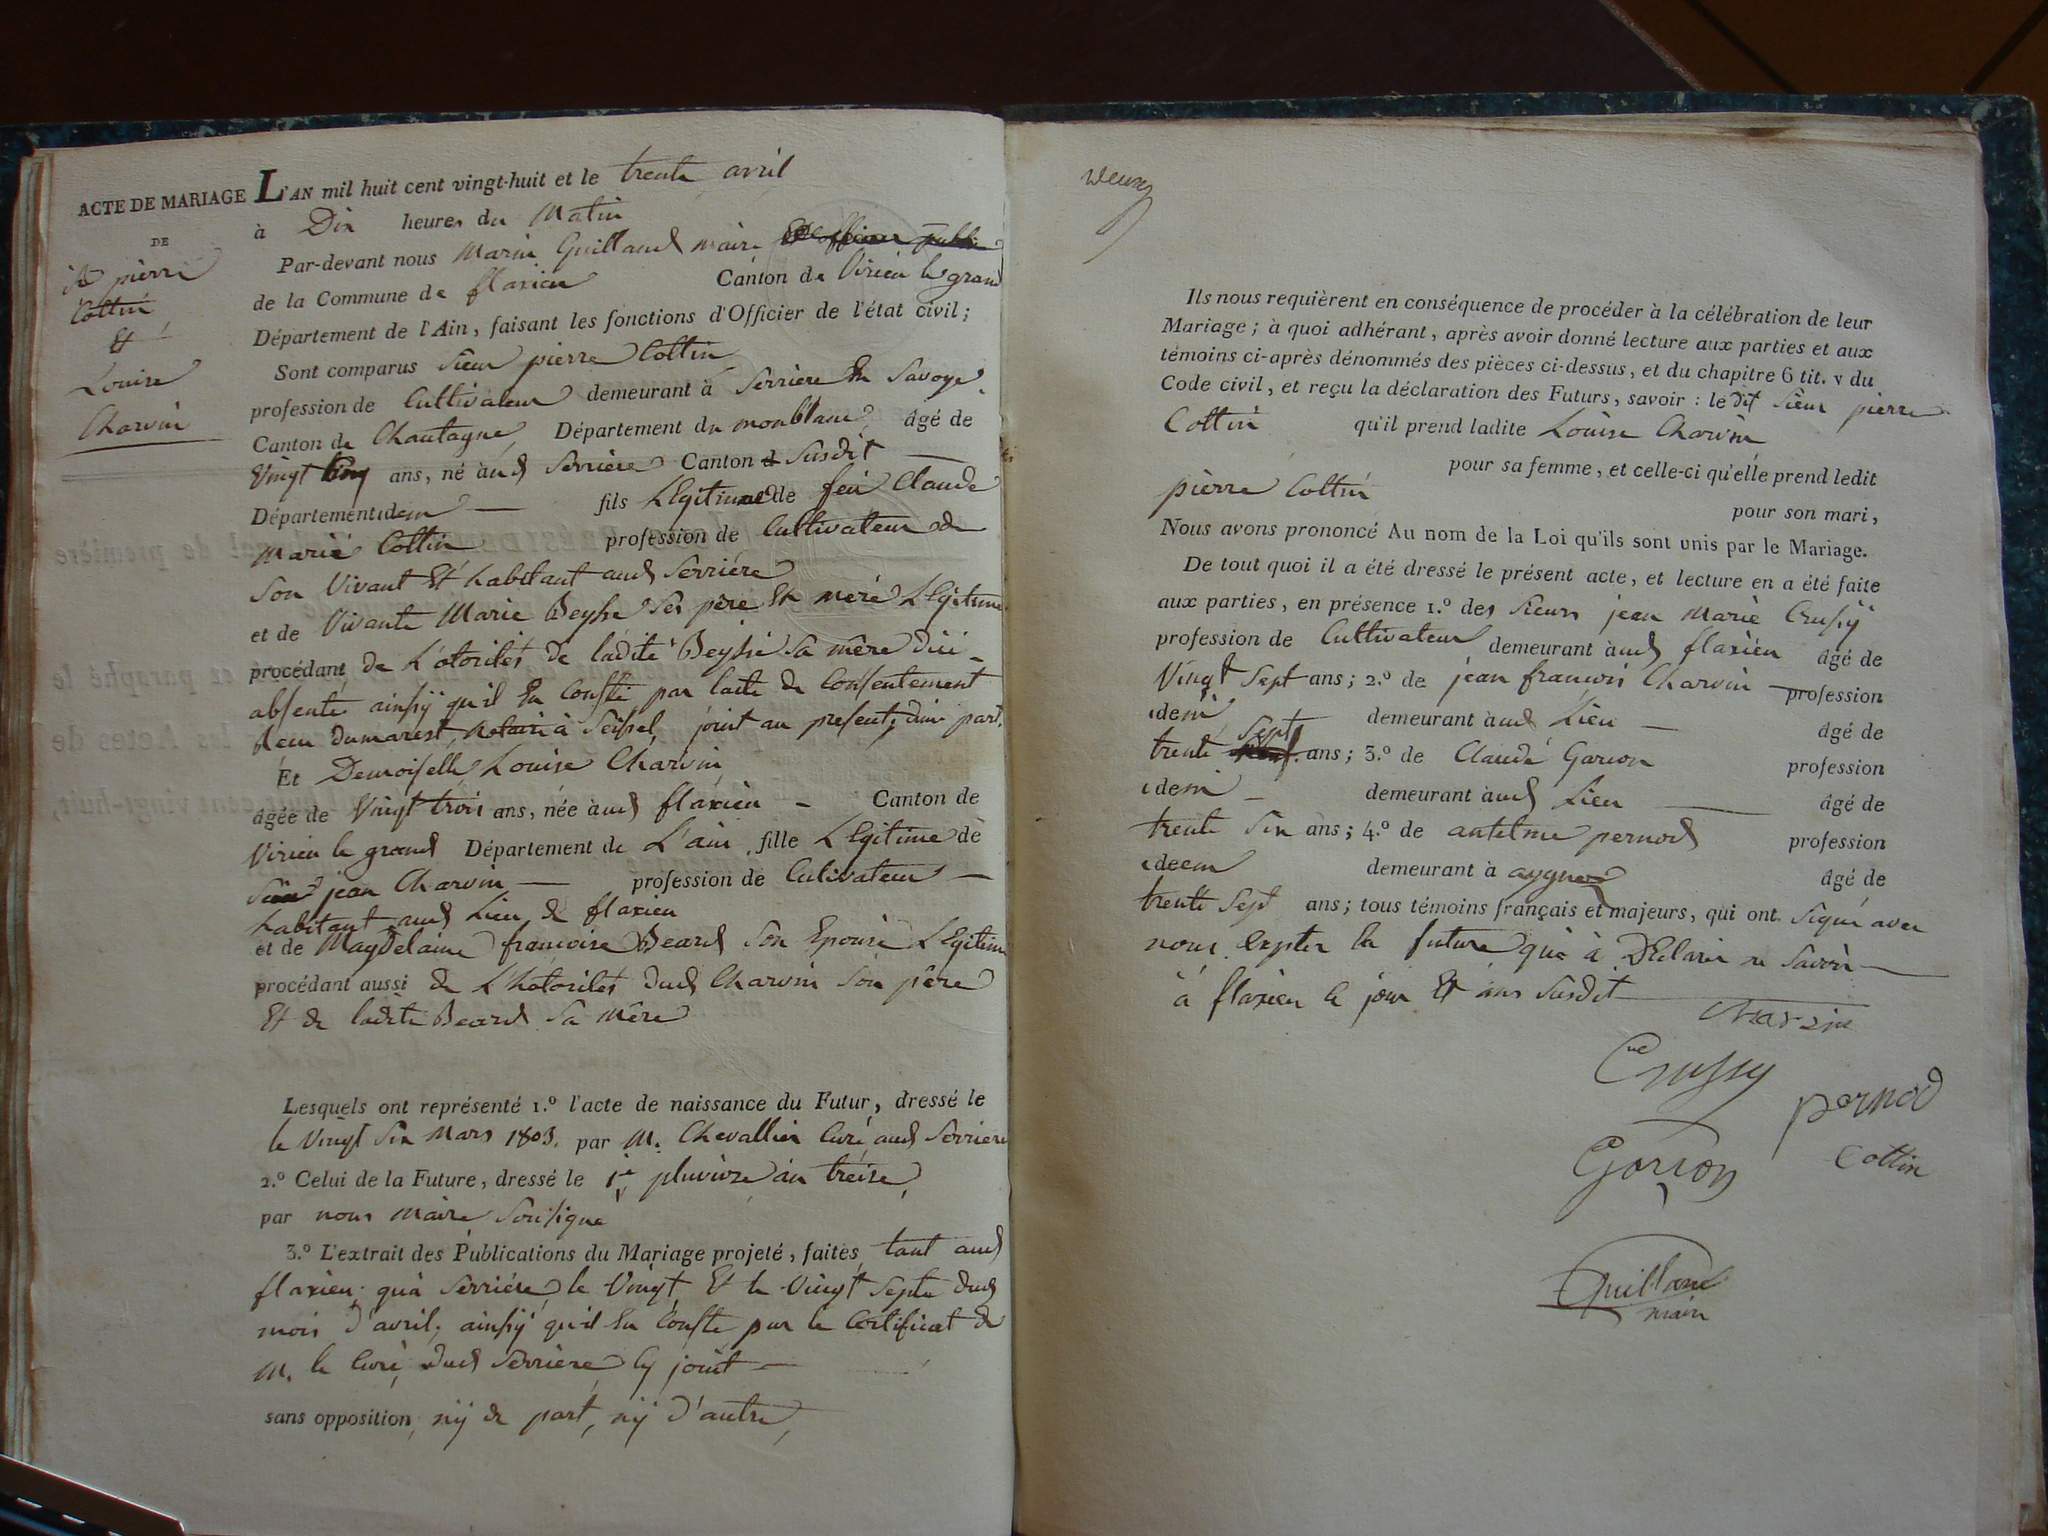 ACTE DE MARIAGE
DE
pierre
Cottin
Et
Louise
Charvin
L'AN mil huit cent vingt-huit et le trente avril
à Dix heures du Matin
Par-devant nous Marin Guilland maire
de la Commune de flaxieu Canton de Virieu le grand
Département de l'Ain, faisant les fonctions d'Officier de l'état civil;
Sont comparus Sieur pierre Cottin
profession de Cultivateur demeurant à Serriere En Savoye
Canton de Chautagne, Département du monblanc, âgé de
Vingt Cinq ans, né aud Serriére Canton Susdit
Département idem fils Légitime de feu Claude
Marie Cottin profession de Cultivateur de
Son Vivant Et habitant aud Serriére
et de Vivante Marie Beysse Ses père Et mére Légitime
procédant de L'otorités de ladite Beysse Sa mère dici
absente ainsÿ qu'il En Conste par lacte de Consentement
Recu Dumarest, Notaire à Seissel, joint au present, d'une part.
Et Demoiselle Louise Charvin
âgée de Vingt trois ans, née aud flaxieu Canton de
Virieu le grand Département de L'ain fille Légitime de
Sieur jean Charvin profession de Culivateur
habitant aud Lieu de flaxieu
et de Magdelaine francoise Beard Son Epouse Légitime
procédant aussi de L'hotorités dud Charvin Son père
Et de ladite Beard Sa Mére
Lesquels ont représenté 1.º l'acte de naissance du Futur, dressé le
le Vingt Six Mars 1803. par M. Chevallier Curé aud Serriere
2.º Celui de la Future, dressé le 1er pluviose an treise,
par nous Maire Sousigné
3.º L'extrait des Publications du Mariage projeté, faites, tant aud
flaxieu; qu'a Serriére, le Vingt Et le Vingt Sept dud
mois d'avril, ainsÿ qu'il En Conste par le Certificat de
M. le Curé dud Serriére Cy joint
sans opposition, nÿ de part, nÿ d'autre,
Ils nous requièrent en conséquence de procéder à la célébration de leur
Mariage; à quoi adhérant, après avoir donné lecture aux parties et aux
témoins ci-après dénommés des pièces ci-dessus, et du chapitre 6 tit. v du
Code civil, et reçu la déclaration des Futurs, savoir: le dit Sieur pierre
Cottin qu'il prend ladite Louise Charvin
pour sa femme, et celle-ci qu'elle prend ledit
pierre Cottin
pour son mari,
Nous avons prononcé Au nom de la Loi qu'ils sont unis par le Mariage.
De tout quoi il a été dressé le présent acte, et lecture en a été faite
aux parties, en présence 1.º des Sieurs jean Marie Crussÿ
profession de Cultivateur demeurant aud flaxieu âgé de
Vingt Sept ans; 2.º de jean francois Charvin profession
idem demeurant aud Lieu âgé de
trente Sept ans; 3.º de Claude Gorion profession
idem demeurant aud Lieu âgé de
trente Six ans; 4.º de antelme pernod profession
ideem demeurant à âgé de
trente Sept ans; tous témoins français et majeurs, qui ont Signé avec
nous, Exepter la future qui à Déclarer ne Savoir
à flaxieu le jour Et ans Susdit
Charvin
Crussy
pernod
Gorion
Cottin
Guilland
maire